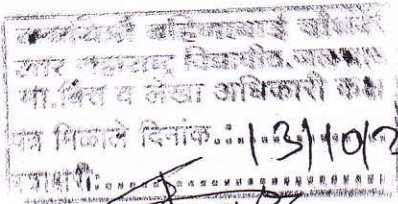 कवयित्री बहिणाबाई चौधरी
उत्तर महाराष्ट्र विद्यापीठ, जळगाव
मा.वित्त व लेखा अधिकारी कक्ष
पत्र मिळाले दिनांक.: 13/10/2